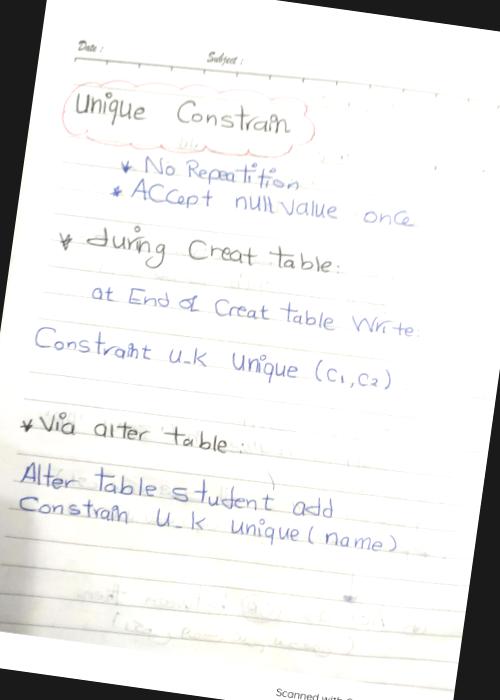 Date :
Subject :
Unique Constrain
* No Repeatition
* Accept null value once
* during Creat table:
at End of Creat table Write:
Constraint u_k Unique (c1,c2)
* Via alter table:
Alter table student add
Constrain u_k unique (name)
Scanned with